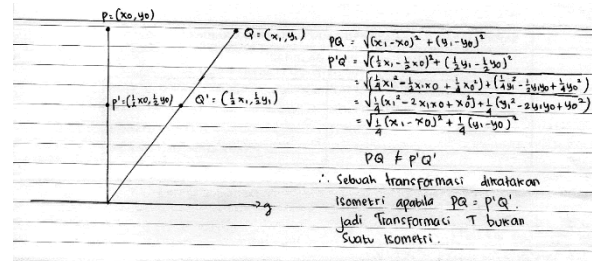 P=(x0,y0)
Q=(x1,y1)
P'=(½x0,½y0)
Q'=(½x1,½y1)
g
PQ = √(x1-x0)² + (y1-y0)²
P'Q' = √(½x1-½x0)²+(½y1-½y0)²
= √(¼x1²-½x1x0+¼x0²)+(¼y1²-½y1y0+¼y0²)
= √¼(x1²-2x1x0+x0²)+¼(y1²-2y1y0+y0²)
= √¼(x1-x0)²+¼(y1-y0)²
PQ ≠ P'Q'
∴ Sebuah transformasi dikatakan
Isometri apabila PQ = P'Q'.
Jadi Transformasi T bukan
Suatu Isometri.